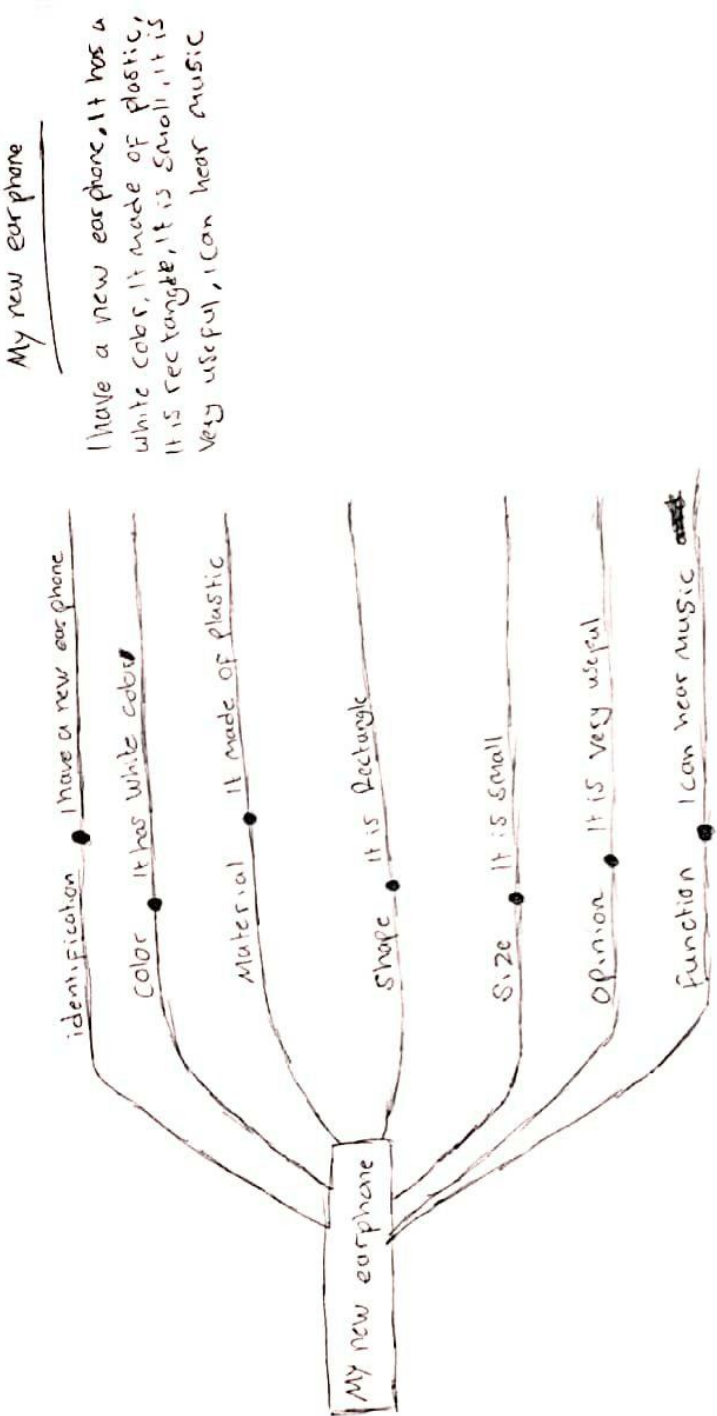 My new earphone
identification I have a new earphone
Color It has white color
Material It made of plastic
Shape It is Rectangle
Size It is small
Opinion It is very useful
Function I can hear music
My new earphone
I have a new earphone, It has a
white color, It made of plastic,
It is rectangle, It is small, It is
very useful, I can hear music